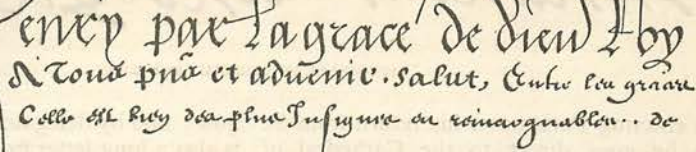 enry par la grace de dieu Roy
A Tous pns et aduenir. Salut, Entre les graces
Celle est bien des plus Insignes et remarquables.. de